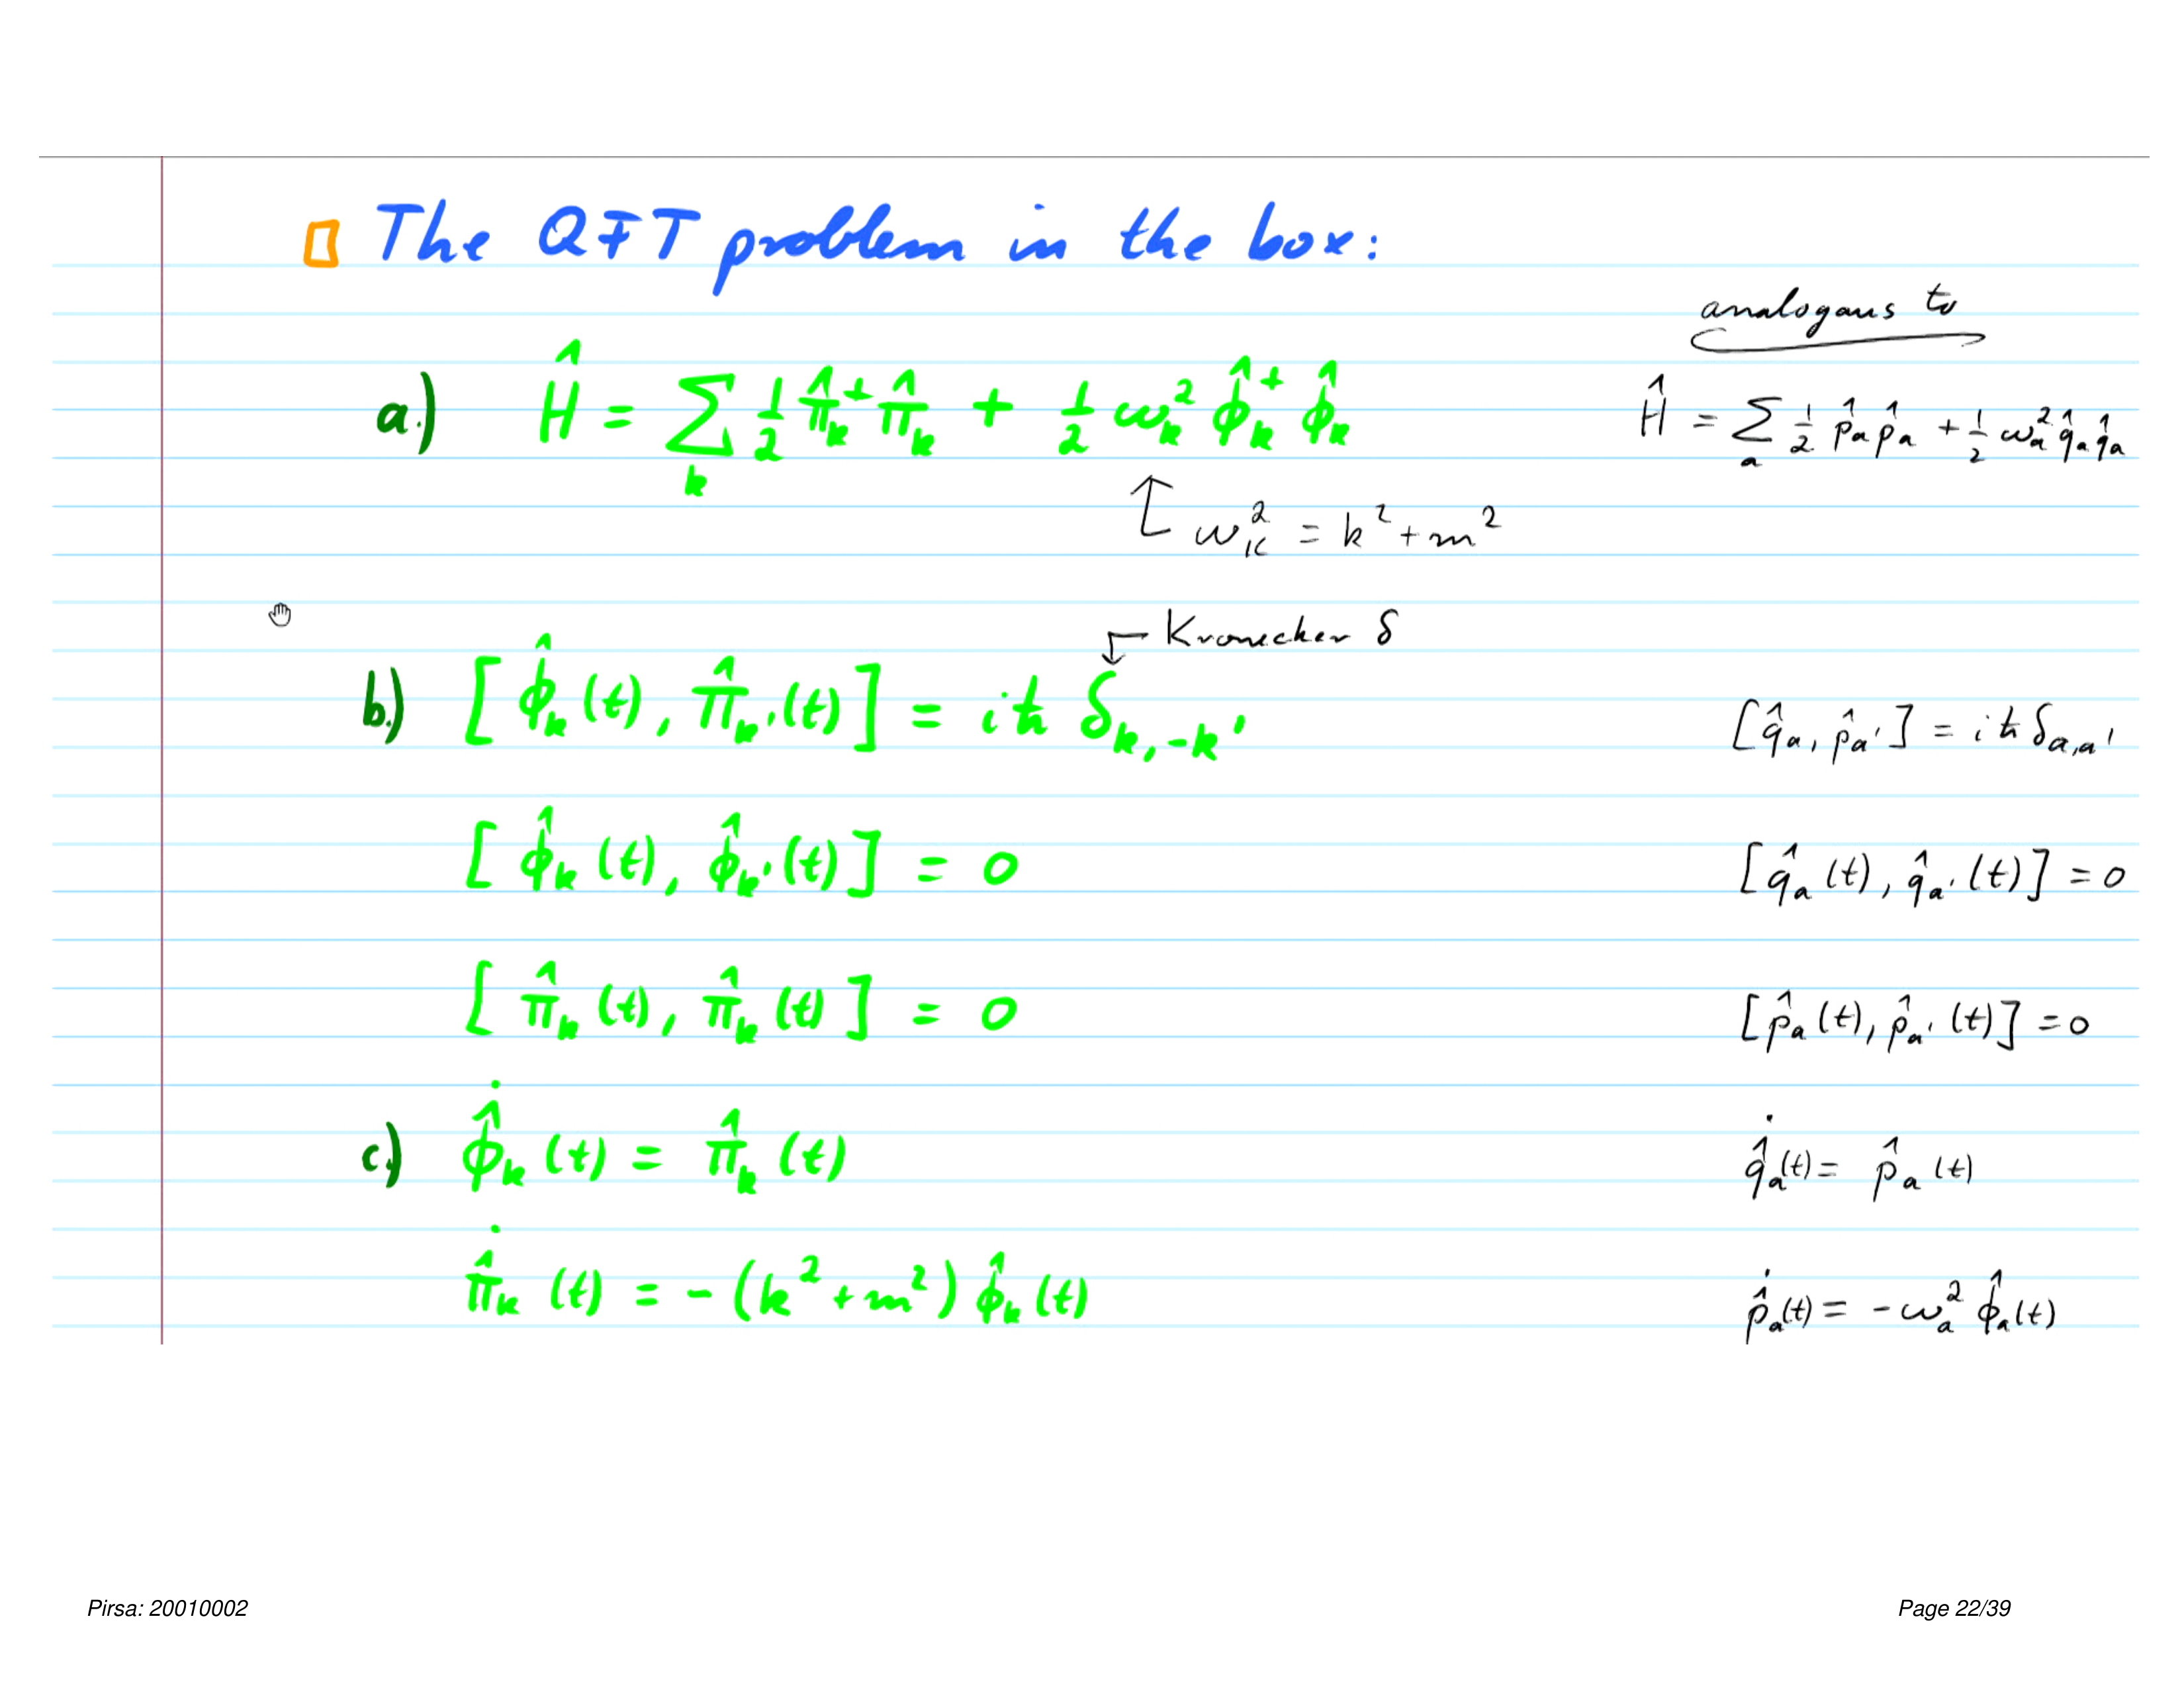 The QFT problem in the box:
analogous to
a.) Ĥ = Σ_k ½ π̂_k⁺ π̂_k + ½ ω_k² φ̂_k⁺ φ̂_k
Ĥ = Σ_a ½ p̂_a p̂_a + ½ ω_a² q̂_a q̂_a
ω_k² = k² + m²
Kronecker δ
b.) [φ̂_k(t), π̂_k'(t)] = iħ δ_k,-k'
[q̂_a, p̂_a'] = iħ δ_a,a'
[φ̂_k(t), φ̂_k'(t)] = 0
[q̂_a(t), q̂_a'(t)] = 0
[π̂_k(t), π̂_k(t)] = 0
[p̂_a(t), p̂_a'(t)] = 0
c.) φ̂̇_k(t) = π̂_k(t)
q̂̇_a(t) = p̂_a(t)
π̂̇_k(t) = -(k² + m²) φ̂_k(t)
p̂̇_a(t) = -ω_a² φ̂_a(t)
Pirsa: 20010002
Page 22/39